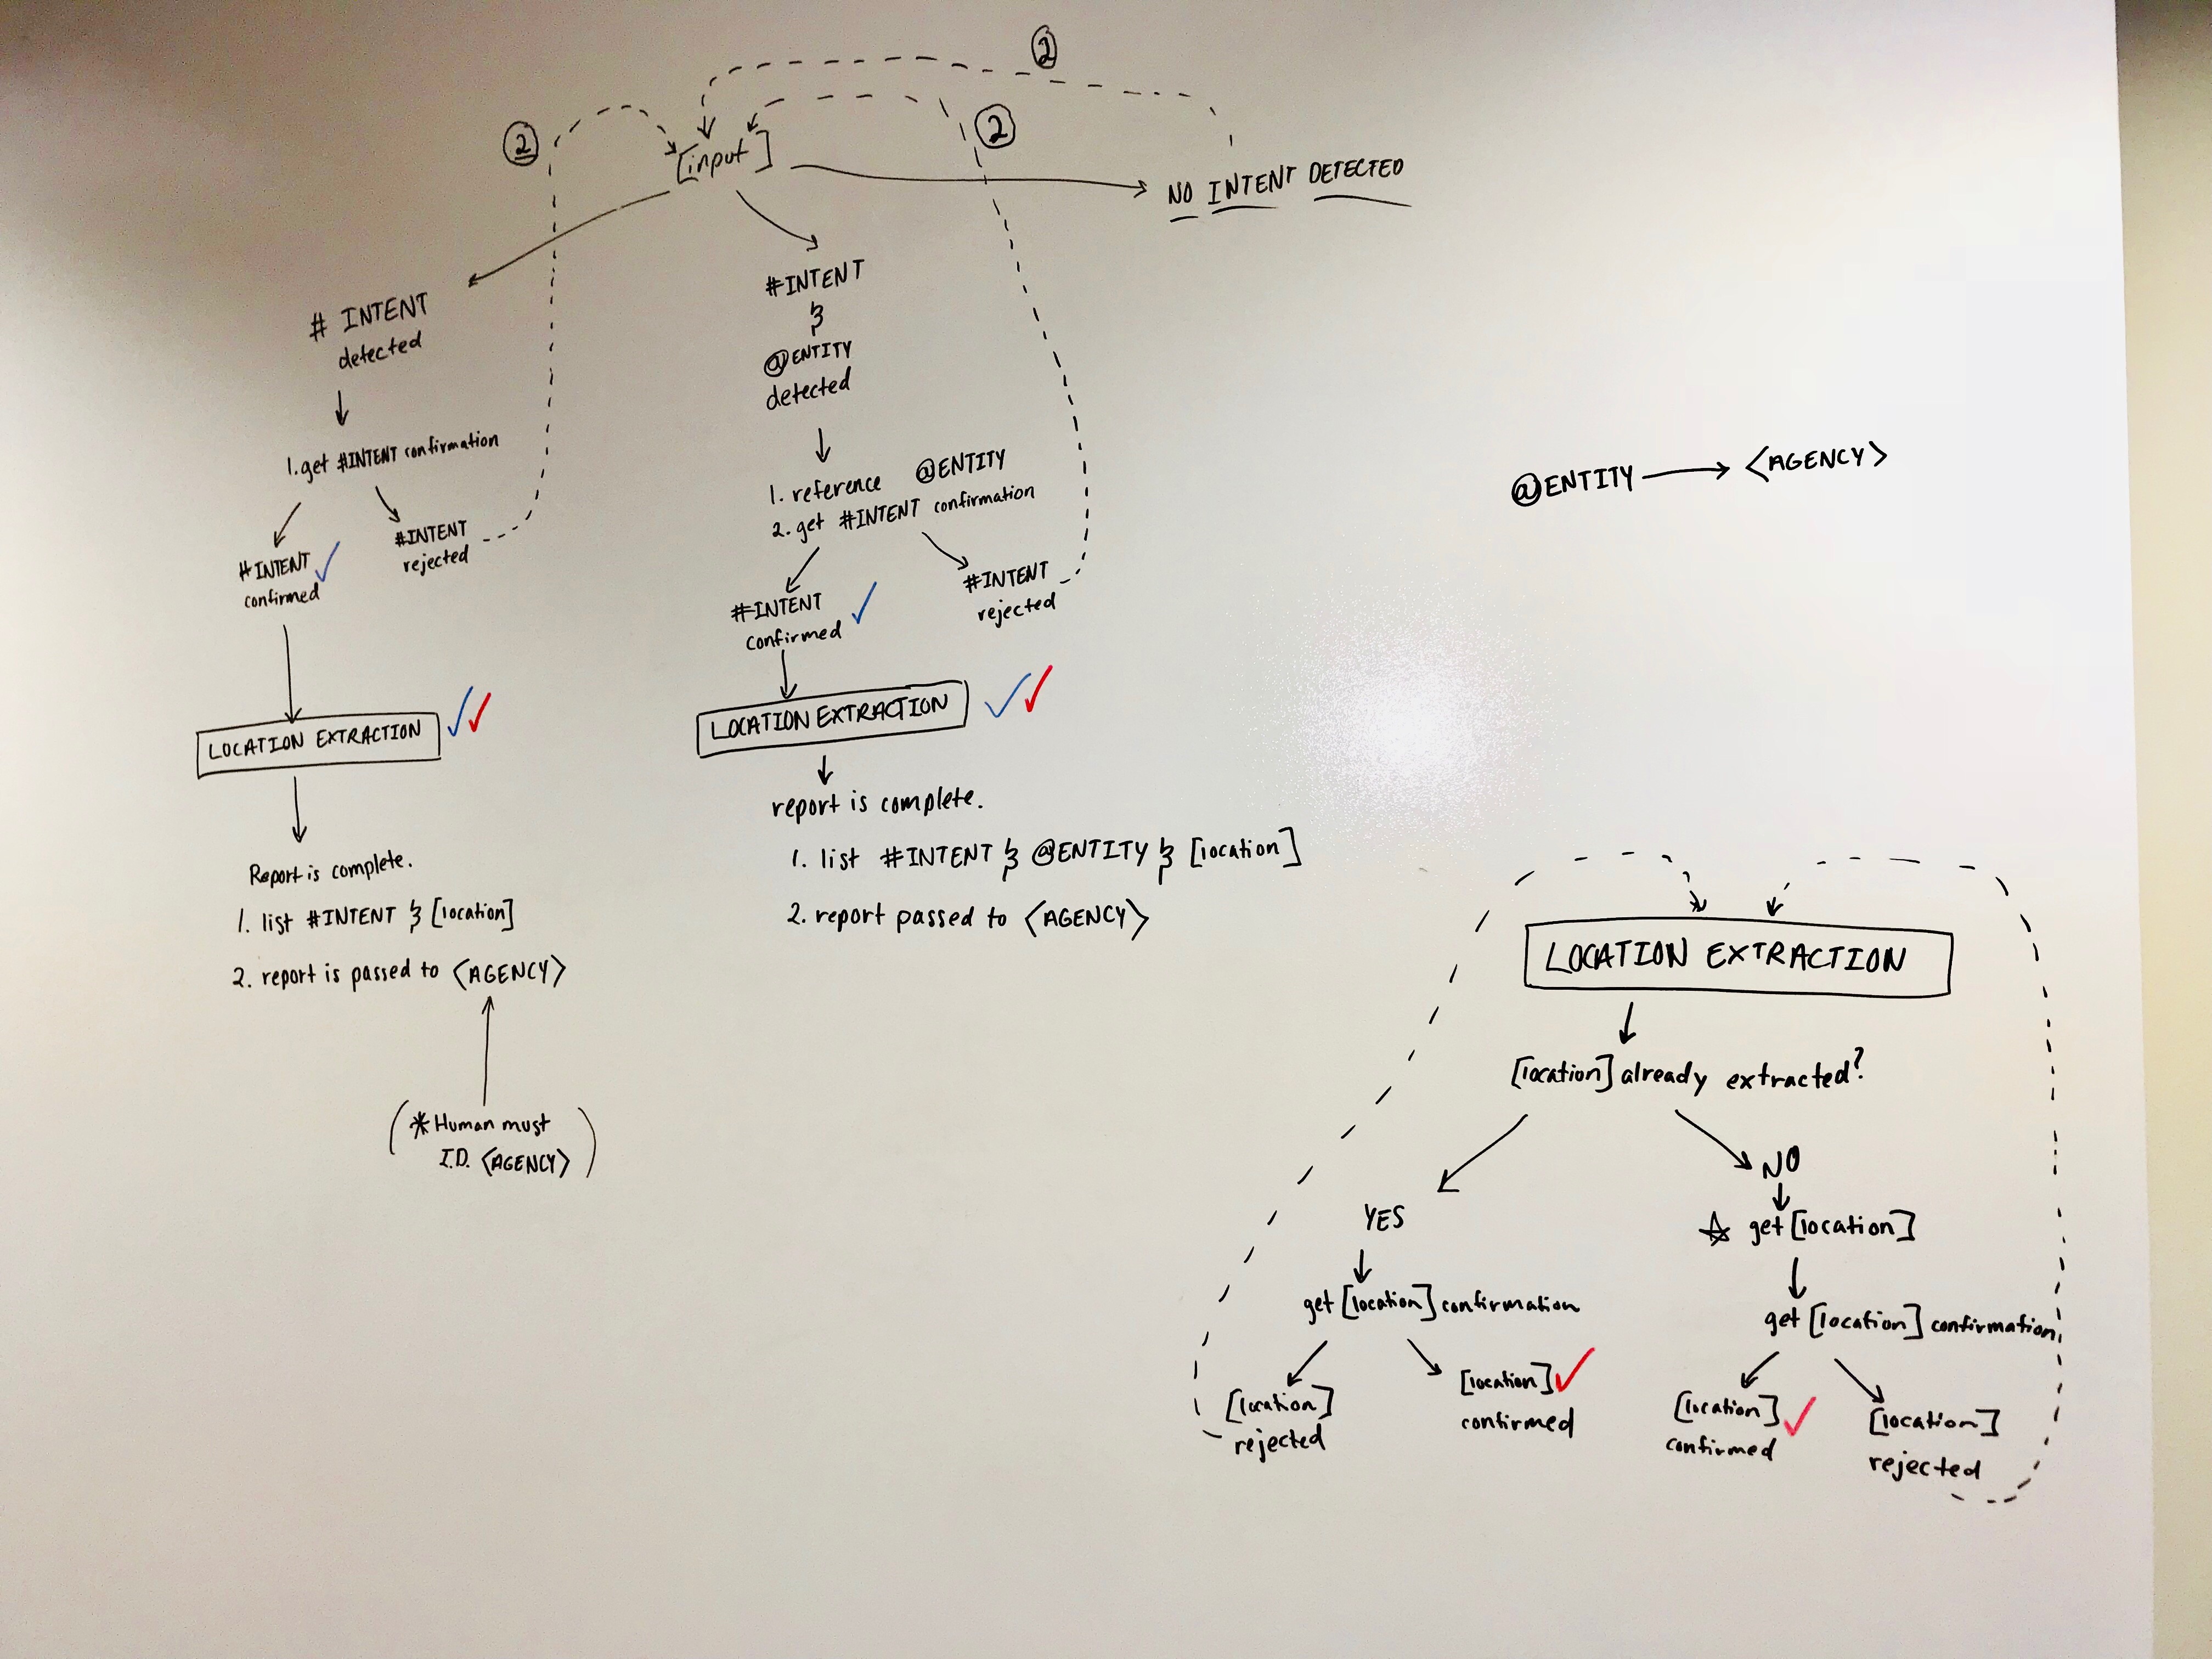 ②
②
②
[input]
NO INTENT DETECTED
# INTENT
detected
1. get #INTENT confirmation
#INTENT
confirmed
#INTENT
rejected
LOCATION EXTRACTION
Report is complete.
1. list #INTENT & [location]
2. report is passed to <AGENCY>
(*Human must
I.D. <AGENCY>)
#INTENT
&
@ENTITY
detected
1. reference @ENTITY
2. get #INTENT confirmation
#INTENT
confirmed
#INTENT
rejected
LOCATION EXTRACTION
report is complete.
1. list #INTENT & @ENTITY & [location]
2. report passed to <AGENCY>
@ENTITY → <AGENCY>
LOCATION EXTRACTION
[location] already extracted?
YES
get [location] confirmation
[location]
rejected
[location]
confirmed
NO
☆ get [location]
get [location] confirmation
[location]
confirmed
[location]
rejected